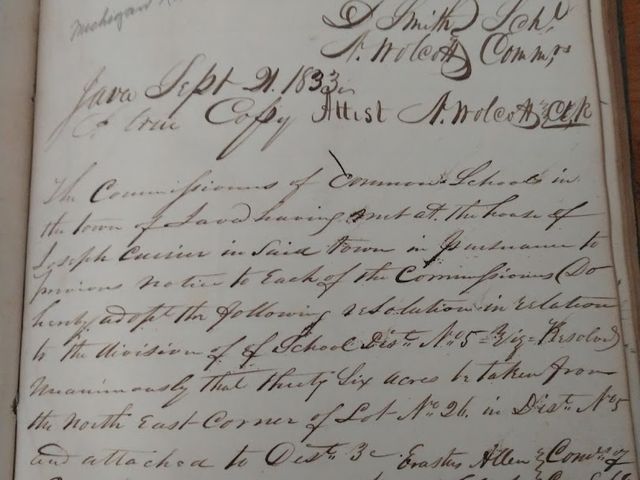 Michigan
D Smith Schl
N. Wolcott Commrs
Java Sept 21. 1833
A true Copy Attist N. Wolcott Clk
The Commissioners of Common Schools in
the town of Java having met at the house of
Joseph Currier in Said town in pursuance to
previous notice to Each of the Commissioners Do
hereby adopt the following resolution in relation
to the division of School Distt No 5 Viz= Resolved
Unanimously that thirty Six acres be taken from
the North East Corner of Lot No 26. in Distt No 5
and attached to Distt 3 Erastus Allen Comrs of